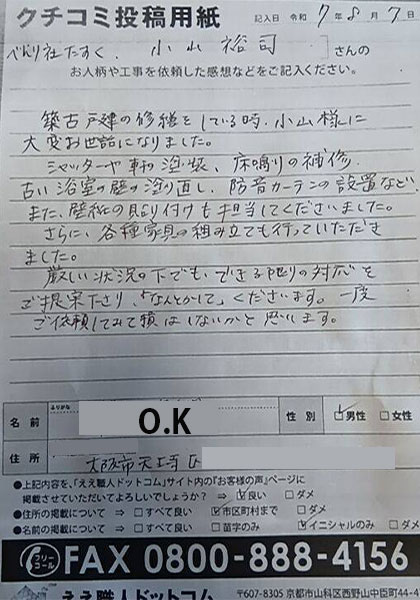 クチコミ投稿用紙 記入日 令和 7年 8月 7日
べんり社たすく. 小山 裕司 さんの
お人柄や工事を依頼した感想などをご記入ください。
築古戸建の修繕をしている時、小山様に
大変お世話になりました。
シャッターや軒の塗装、床鳴りの補修、
古い浴室の壁の塗り直し、防音カーテンの設置など
また、壁紙の貼り付けも担当してくださいました。
さらに、各種家具の組み立ても行っていただき
ました。
厳しい状況の下でも、できる限りの対応を
ご提案下さり、「なんとかして」くださいます。一度
ご依頼してみて損はしないかと思います。
ふりがな
名前 O.K 性別 ☑男性 □女性
住所 大阪市天王寺区
●上記内容を、「ええ職人ドットコム」サイト内の『お客様の声』ページに
掲載させていただいてよろしいでしょうか? ⇒ ☑良い □ダメ
●住所の掲載について ⇒ □すべて良い ☑市区町村まで □ダメ
●名前の掲載について ⇒ □すべて良い □苗字のみ ☑イニシャルのみ □ダメ
フリーコール FAX 0800-888-4156
ええ職人ドットコム 〒607-8305 京都市山科区西野山中臣町44-4